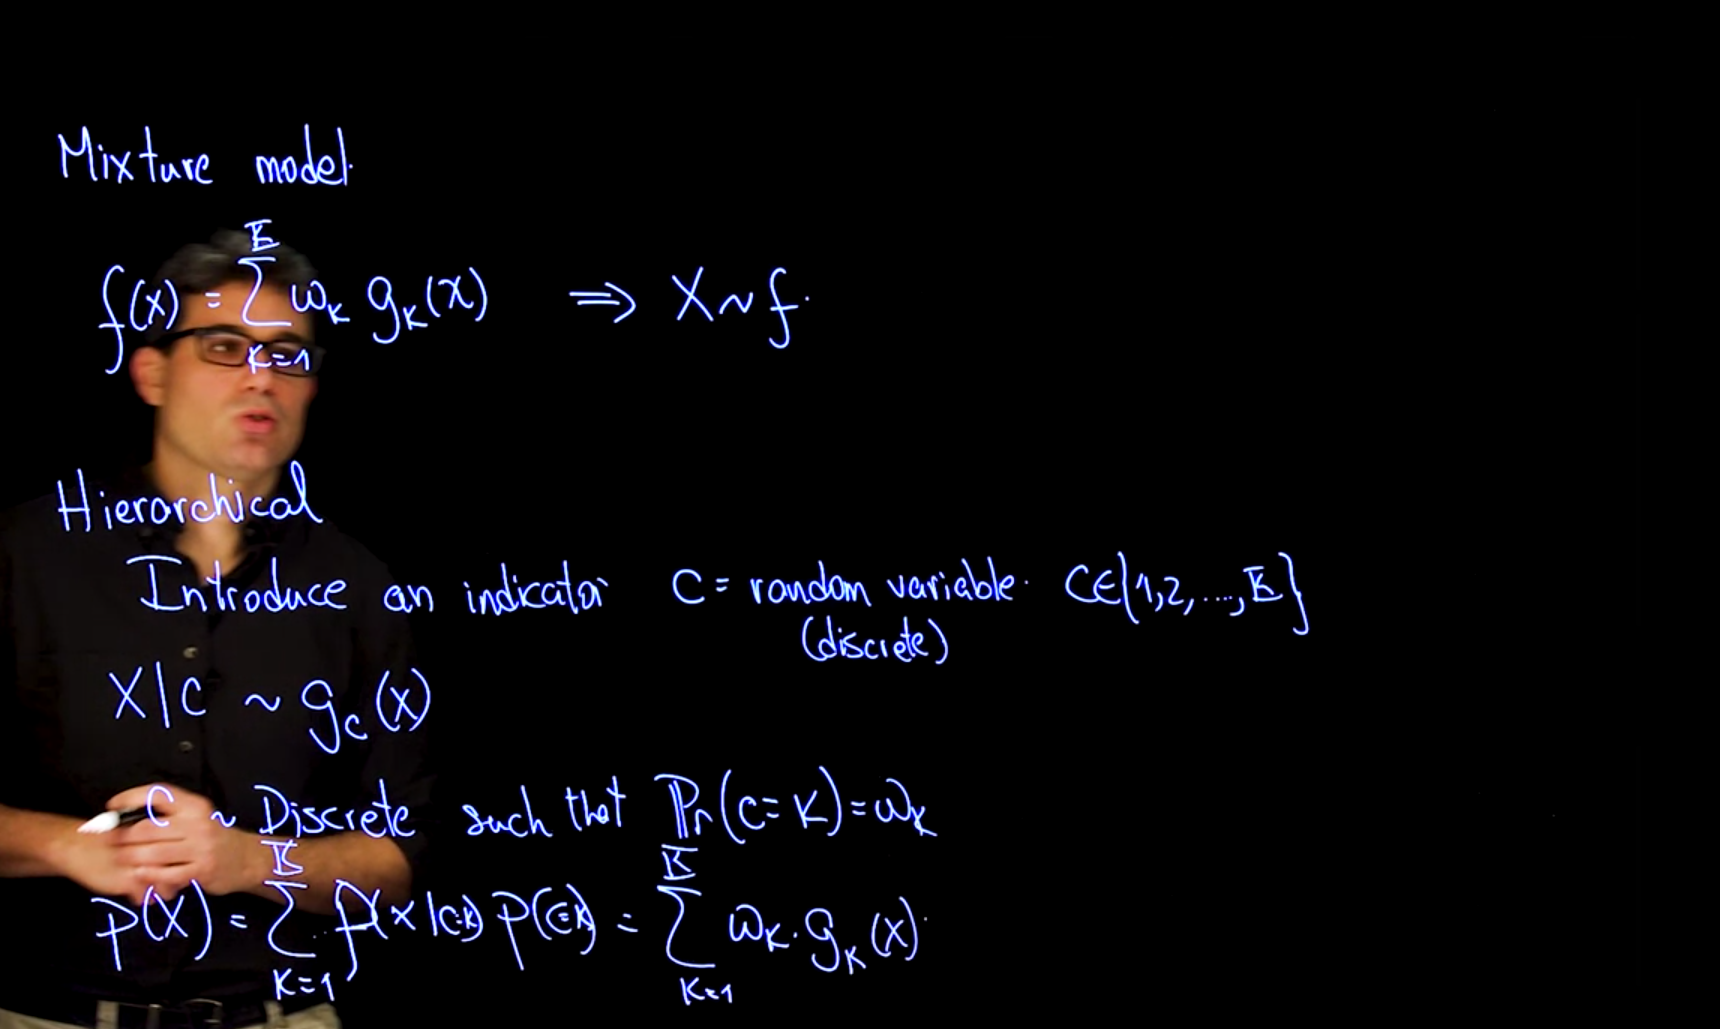 Mixture model.
f(x) = ∑_{k=1}^{K} ω_k g_k(x) ⟹ X ~ f.
Hierarchical
Introduce an indicator C = random variable. C∈{1,2,...,K}
(discrete)
X|C ~ g_c(x)
C ~ Discrete such that Pr(C=k)=ω_k
p(X) = ∑_{k=1}^{K} p(x|c=k) p(c=k) = ∑_{k=1}^{K} ω_k · g_k(x).